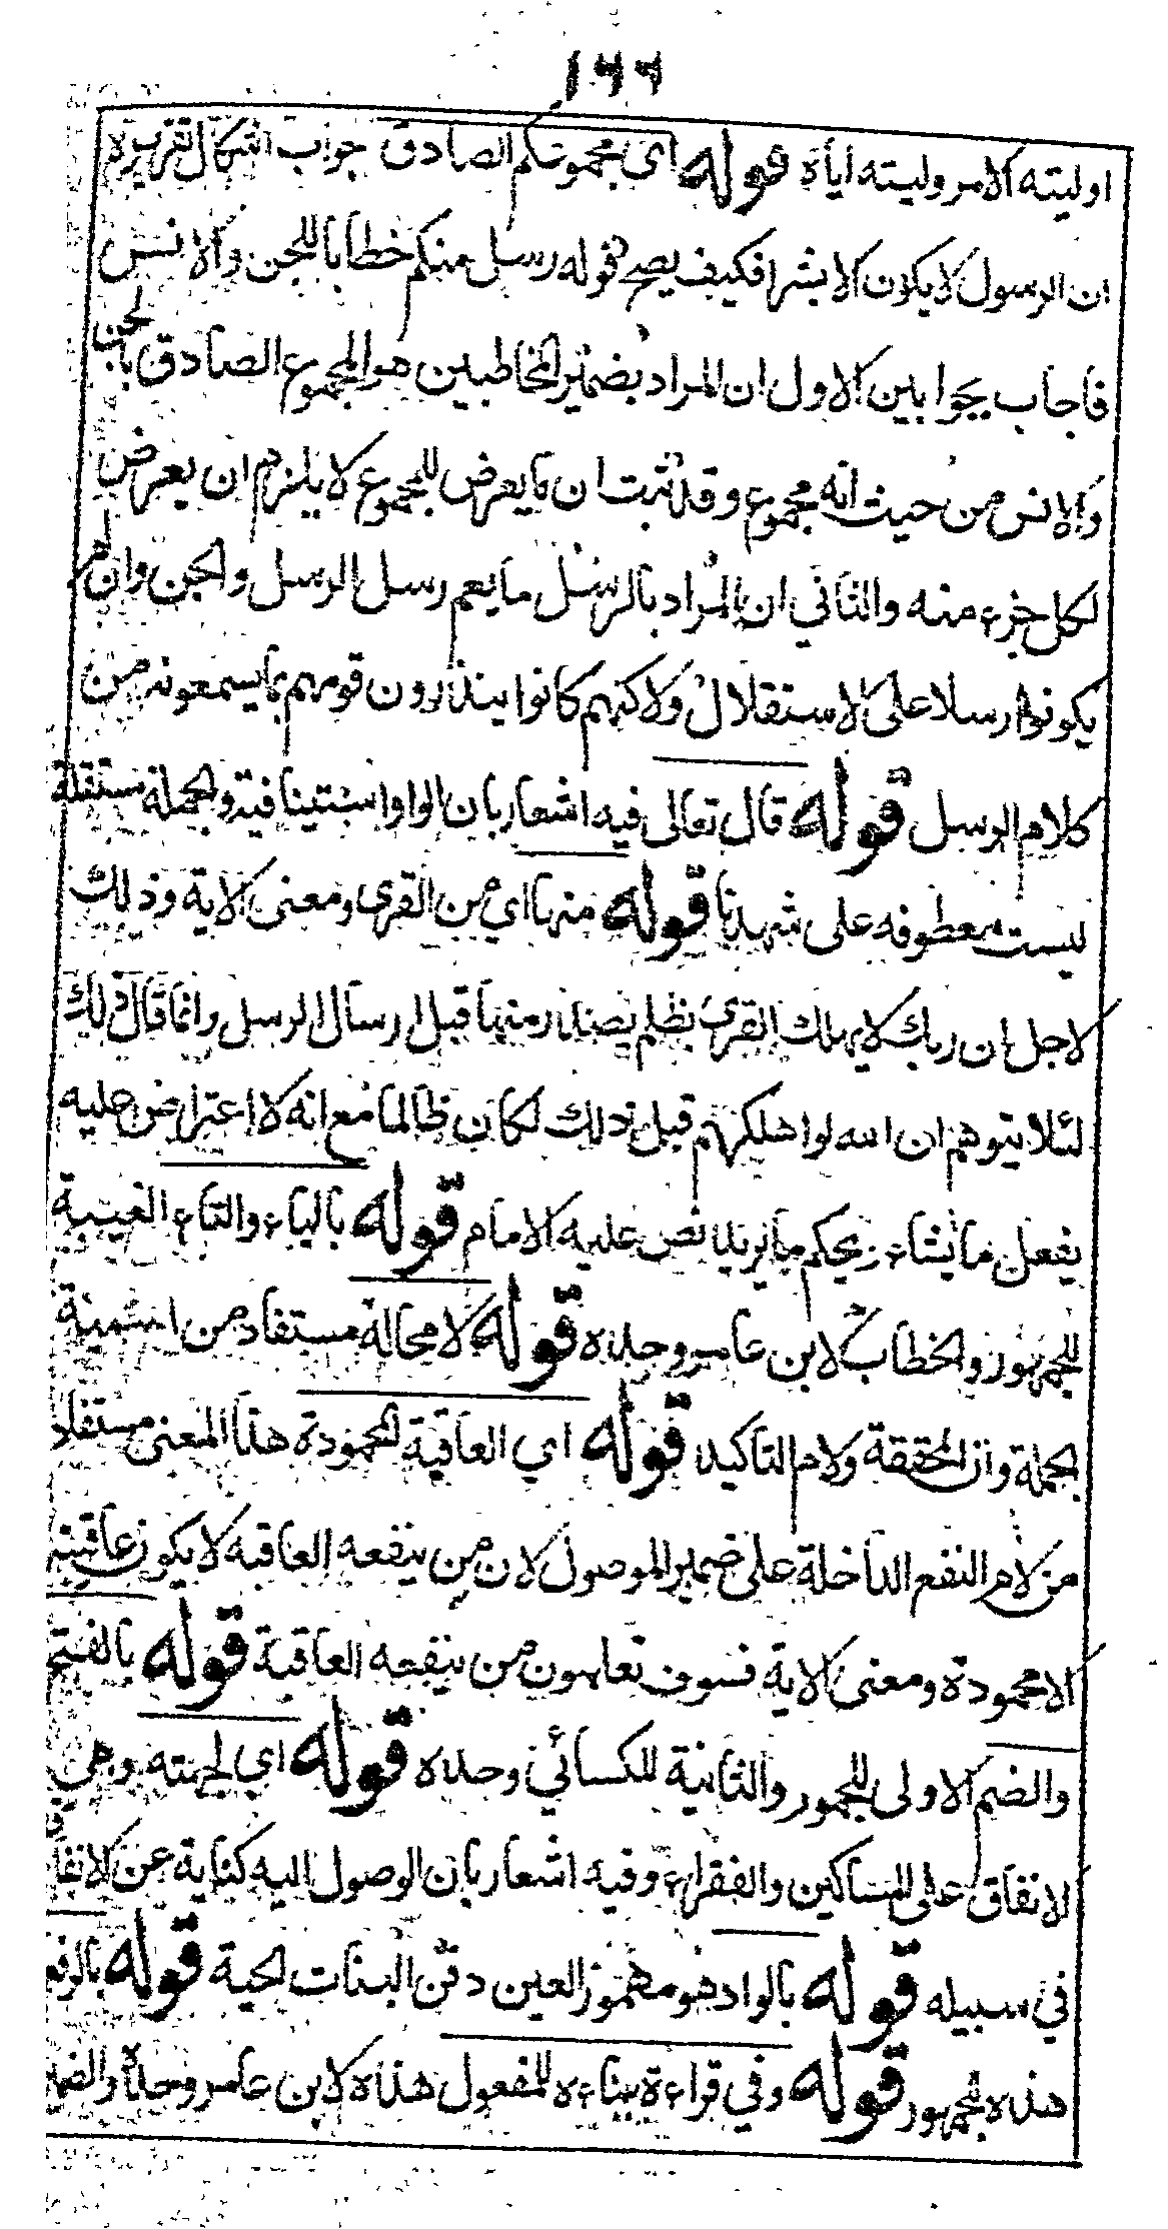 ١٦٦
اوليته الامر وليته اياه قوله اي مجموعكم الصادق جواب اشكال تقريره
ان الرسول لا يكون الا بشرا فكيف يصح قوله رسل منكم خطابا للجن والانس
فاجاب بجوابين الاول ان المراد بضمير المخاطبين هو المجموع الصادق بالجن
والانس من حيث انه مجموع وقد ثبت ان ما يعرض للمجموع لا يلزم ان يعرض
لكل جزء منه والثاني ان المراد بالرسل ما يعم رسل الرسل والجن وان لم
يكونوا رسلا على الاستقلال ولاكنهم كانوا ينذرون قومهم بما يسمعونه من
كلام الرسل قوله قال تعالى فيه اشعار بان الواو استينافية والجملة مستقلة
ليست معطوفه على شهدنا قوله منها اي من القرى ومعنى الاية وذلك
لاجل ان ربك لا يهلك القرى بظلم يصدر منها قبل ارسال الرسل وانما قال ذلك
لئلا يتوهم ان الله لو اهلكهم قبل ذلك لكان ظالما مع انه لا اعتراض عليه
يفعل ما يشاء ويحكم ما يريد نص عليه الامام قوله بالياء والتاء الغيبية
للجمهور والخطاب لابن عامر وحده قوله لا محالة مستفاد من اسمية
الجملة وان المحققة ولام التاكيد قوله اي العاقبة المحمودة هذا المعنى مستفاد
من لام النفع الداخلة على ضمير الموصول لان من ينفعه العاقبه لا يكون عاقبته
الا محمودة ومعنى الاية فسوف تعلمون من ينفعه العاقبة قوله بالفتح
والضم الاولى للجمهور والثانية للكسائي وحده قوله اي لجهته وهي
الانفاق على المساكين والفقراء وفيه اشعار بان الوصول اليه كناية عن الانفاق
في سبيله قوله بالواد هو مهموز العين دفن البنات الحية قوله بالرفع
هذه للجمهور قوله وفي قراءة ببناءه للمفعول هذه لابن عامر وحده والضمير